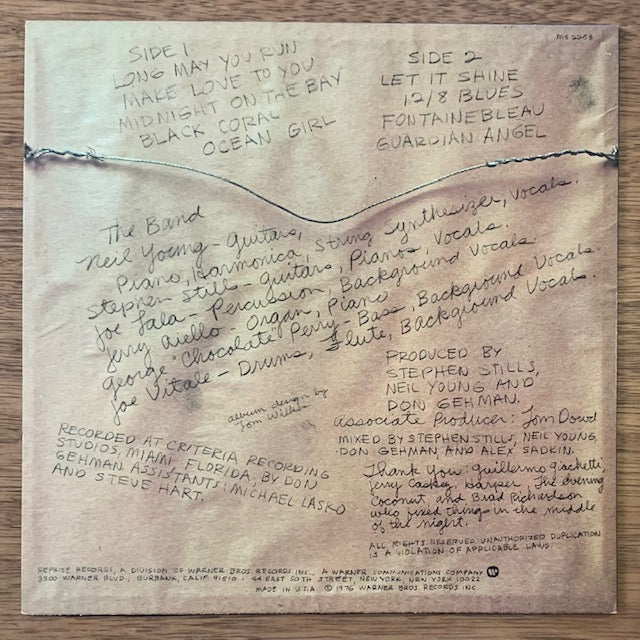 MS 2253
SIDE 1
LONG MAY YOU RUN
MAKE LOVE TO YOU
MIDNIGHT ON THE BAY
BLACK CORAL
OCEAN GIRL
SIDE 2
LET IT SHINE
12/8 BLUES
FONTAINEBLEAU
GUARDIAN ANGEL
The Band
Neil Young - Guitars,
Piano, Harmonica, String Synthesizer, Vocals.
Stephen Stills - Guitars, Pianos, Vocals.
Joe Lala - Percussion, Background Vocals
Jerry Aiello - Organ, Piano
George "Chocolate" Perry - Bass, Background Vocals.
Joe Vitale - Drums, Flute, Background Vocals.
album design by
Tom Wilkes
PRODUCED BY
STEPHEN STILLS,
NEIL YOUNG AND
DON GEHMAN.
Associate Producer: Tom Dowd
MIXED BY STEPHEN STILLS, NEIL YOUNG,
DON GEHMAN AND ALEX SADKIN.
RECORDED AT CRITERIA RECORDING
STUDIOS, MIAMI, FLORIDA, BY DON
GEHMAN. ASSISTANTS: MICHAEL LASKO
AND STEVE HART.
Thank You: Guillermo Giachetti,
Jerry Caskey, Harper, The evening
Coconut, and Brad Richardson
who fixed things in the middle
of the night.
ALL RIGHTS RESERVED UNAUTHORIZED DUPLICATION
IS A VIOLATION OF APPLICABLE LAWS.
REPRISE RECORDS, A DIVISION OF WARNER BROS. RECORDS INC., A WARNER COMMUNICATIONS COMPANY
3300 WARNER BLVD., BURBANK, CALIF. 91510 · 44 EAST 50TH STREET, NEW YORK, NEW YORK 10022
MADE IN U.S.A. © 1976 WARNER BROS. RECORDS INC.